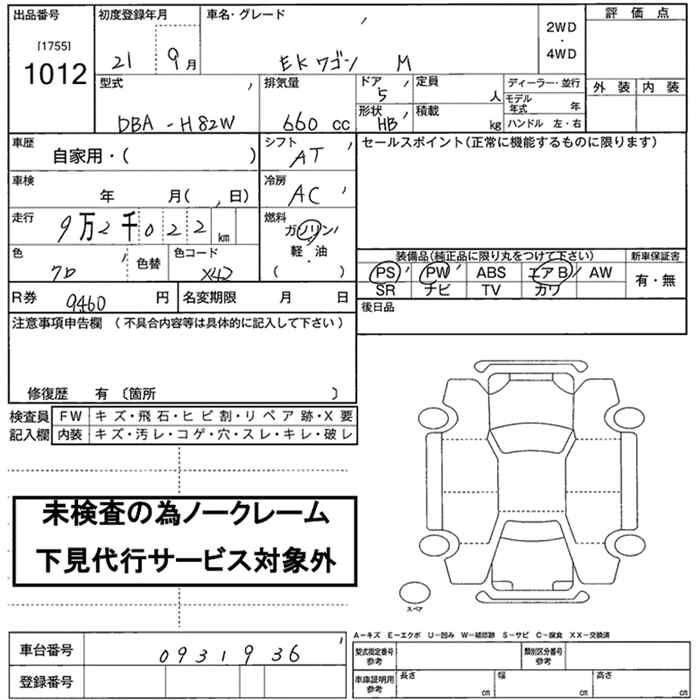 出品番号 初度登録年月 車名・グレード 2WD・4WD 評価点
[1755]
1012 21 9月 EKワゴン M
外装 内装
型式 排気量 ドア 定員 ディーラー・並行
5 人 モデル年式 年
DBA-H82W 660 cc 形状 HB 積載 kg ハンドル 左・右
車歴 シフト セールスポイント(正常に機能するものに限ります)
自家用・( ) AT
車検 冷房
年 月( 日) AC
走行 燃料
9万2千022km ガソリン・軽油
( )
色 色替 色コード 装備品(純正品に限り丸をつけて下さい) 新車保証書
X42 PS PW ABS エアB AW 有・無
SR ナビ TV カワ
R券 9460円 名変期限 月 日 後日品
注意事項申告欄 (不具合内容等は具体的に記入して下さい)
修復歴 有〔箇所 〕
検査員 FW キズ・飛石・ヒビ割・リペア跡・X要
記入欄 内装 キズ・汚レ・コゲ・穴・スレ・キレ・破レ
未検査の為ノークレーム
下見代行サービス対象外
スペア
A−キズ E−エクボ U−凹み W−補修跡 S−サビ C−腐食 XX−交換済
車台番号 0931936 型式指定番号 参考 類別区分番号 参考
登録番号 車庫証明用 参考 長さ cm 幅 cm 高さ cm